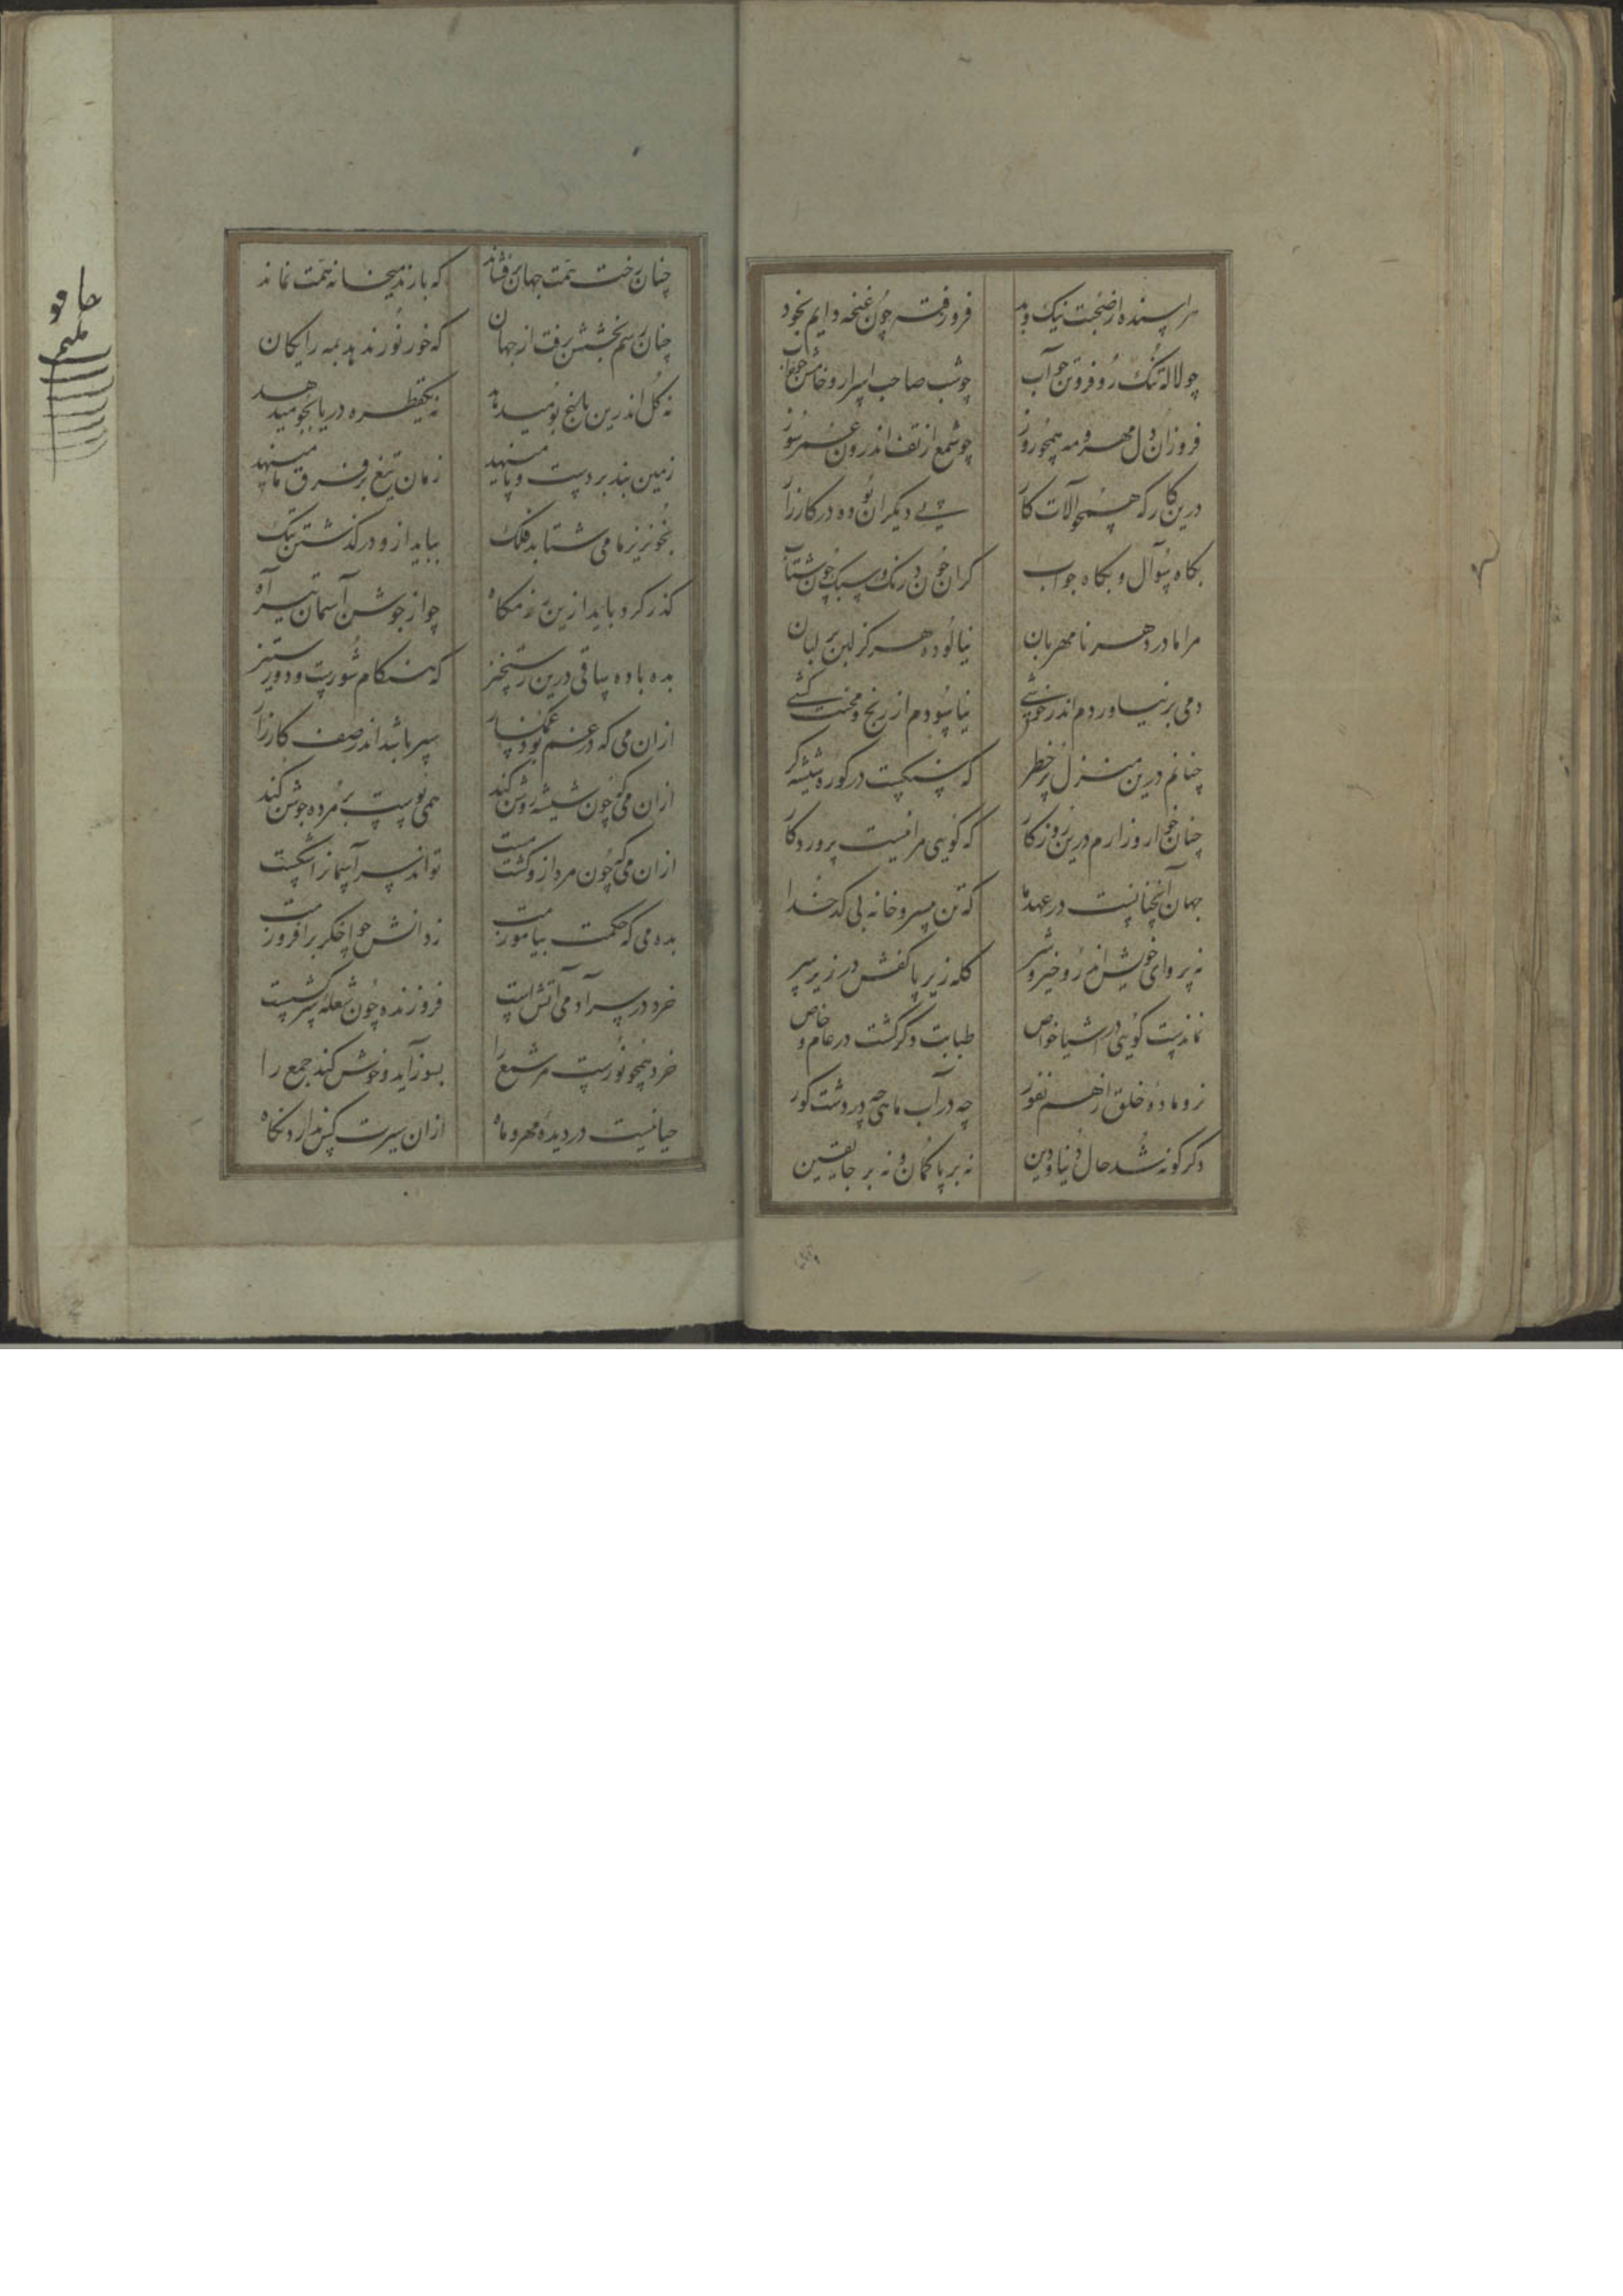 هراسنده از صحبت نیک و بد فرو رفته چون غنچه دایم بخود
چو لاله تنک رو فروتن چو آب چو شب صاحب اسرار و خامش جواب
فروزان دل مهر و مه همچو روز چو شمع از تف اندرون عمر سوز
درین کار که همچو آلات کار پی دیگران بوده در کارزار
بکاه سوآل و بکاه جواب کران چون درنک و سبک چون شتاب
مرا مادر دهر نامهربان نیالوده هرکز لبن بر لبان
دمی بر نیاوردم اندر خوشی نیاسودم از رنج و محنت کشی
چنانم درین منزل پر خطر که سنکست در کوره شیشه کر
چنان خوار و زارم درین روزکار که کویی مرا نیست پروردکار
جهان آنچنانست در عهد ما که تن بی سر و خانه بی کدخدا
نه پروای خویش اندرو خیر و شر کله زیر پا کفش در زیر سر
نماندست کویی در اشیا خواص طبابت دکر کشت در عام و خاص
نر و ماده خلق از هم نفور چه در آب ماهی چه در دشت کور
دکرکونه شد حال دنیا و دین نه بر پا کمان و نه بر جا یقین
چنان رخت همت جهان برفشاند که بار ندیخانه همت نماند
چنان رسم بخشش برفت از جهان که خور نور ندهد بمه رایکان
نه کل اندرین باغ بو میدهد نه یکقطره دریا بجو میدهد
زمین بند بر دست و پا مینهد زمان تیغ بر فرق ما مینهد
بخونریز ما می شتابد فلک بباید ازو در کذشتن بتک
کذر کرد باید ازین رزمکاه چو از جوشن آسمان تیر آه
بده باده ساقی درین رستخیز که هنکام شورست و دور ستیز
ازان می که در غم بود غمکسار سپر باشد اندر صف کارزار
ازان می که چون شیشه روشن کند همی پوست بر مرده جوشن کند
ازان می که چون مرد ازو کشت مست تواند سر آسمانرا شکست
بده می که حکمت بیاموزمت ز دانش چو اخکر برافروزمت
خرد در سر آدمی آتش است فروزنده چون شعله سرکشست
خرد همچو نورست مر شمع را بسوز آید و خوش کند جمع را
حیا نیست در دیده مهر و ماه ازان سیرت کس ندارد نکاه